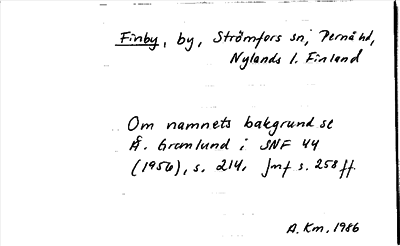 Finby, by, Strömfors sn, Pernå hd,
Nylands l. Finland
Om namnets bakgrund se
Å. Granlund i SNF 44
(1956), s. 214. Jmf s. 258 ff.
A. Km. 1986